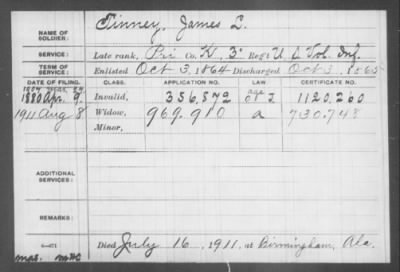 NAME OF SOLDIER: Tinney, James L.
SERVICE: Late rank, Pri Co. H, 3" Reg't U S Vol. Inf.
TERM OF SERVICE: Enlisted Oct 3, 1864 Discharged Oct 3, 1865
DATE OF FILING. CLASS. APPLICATION NO. LAW. CERTIFICATE NO.
1880 Apr. 9. Invalid, 356,572 age 1120,260
1911 Aug 8 Widow, 969.910 a 730.748
Minor,
ADDITIONAL SERVICES:
REMARKS:
Died July 16, 1911, at Birmingham, Ala.